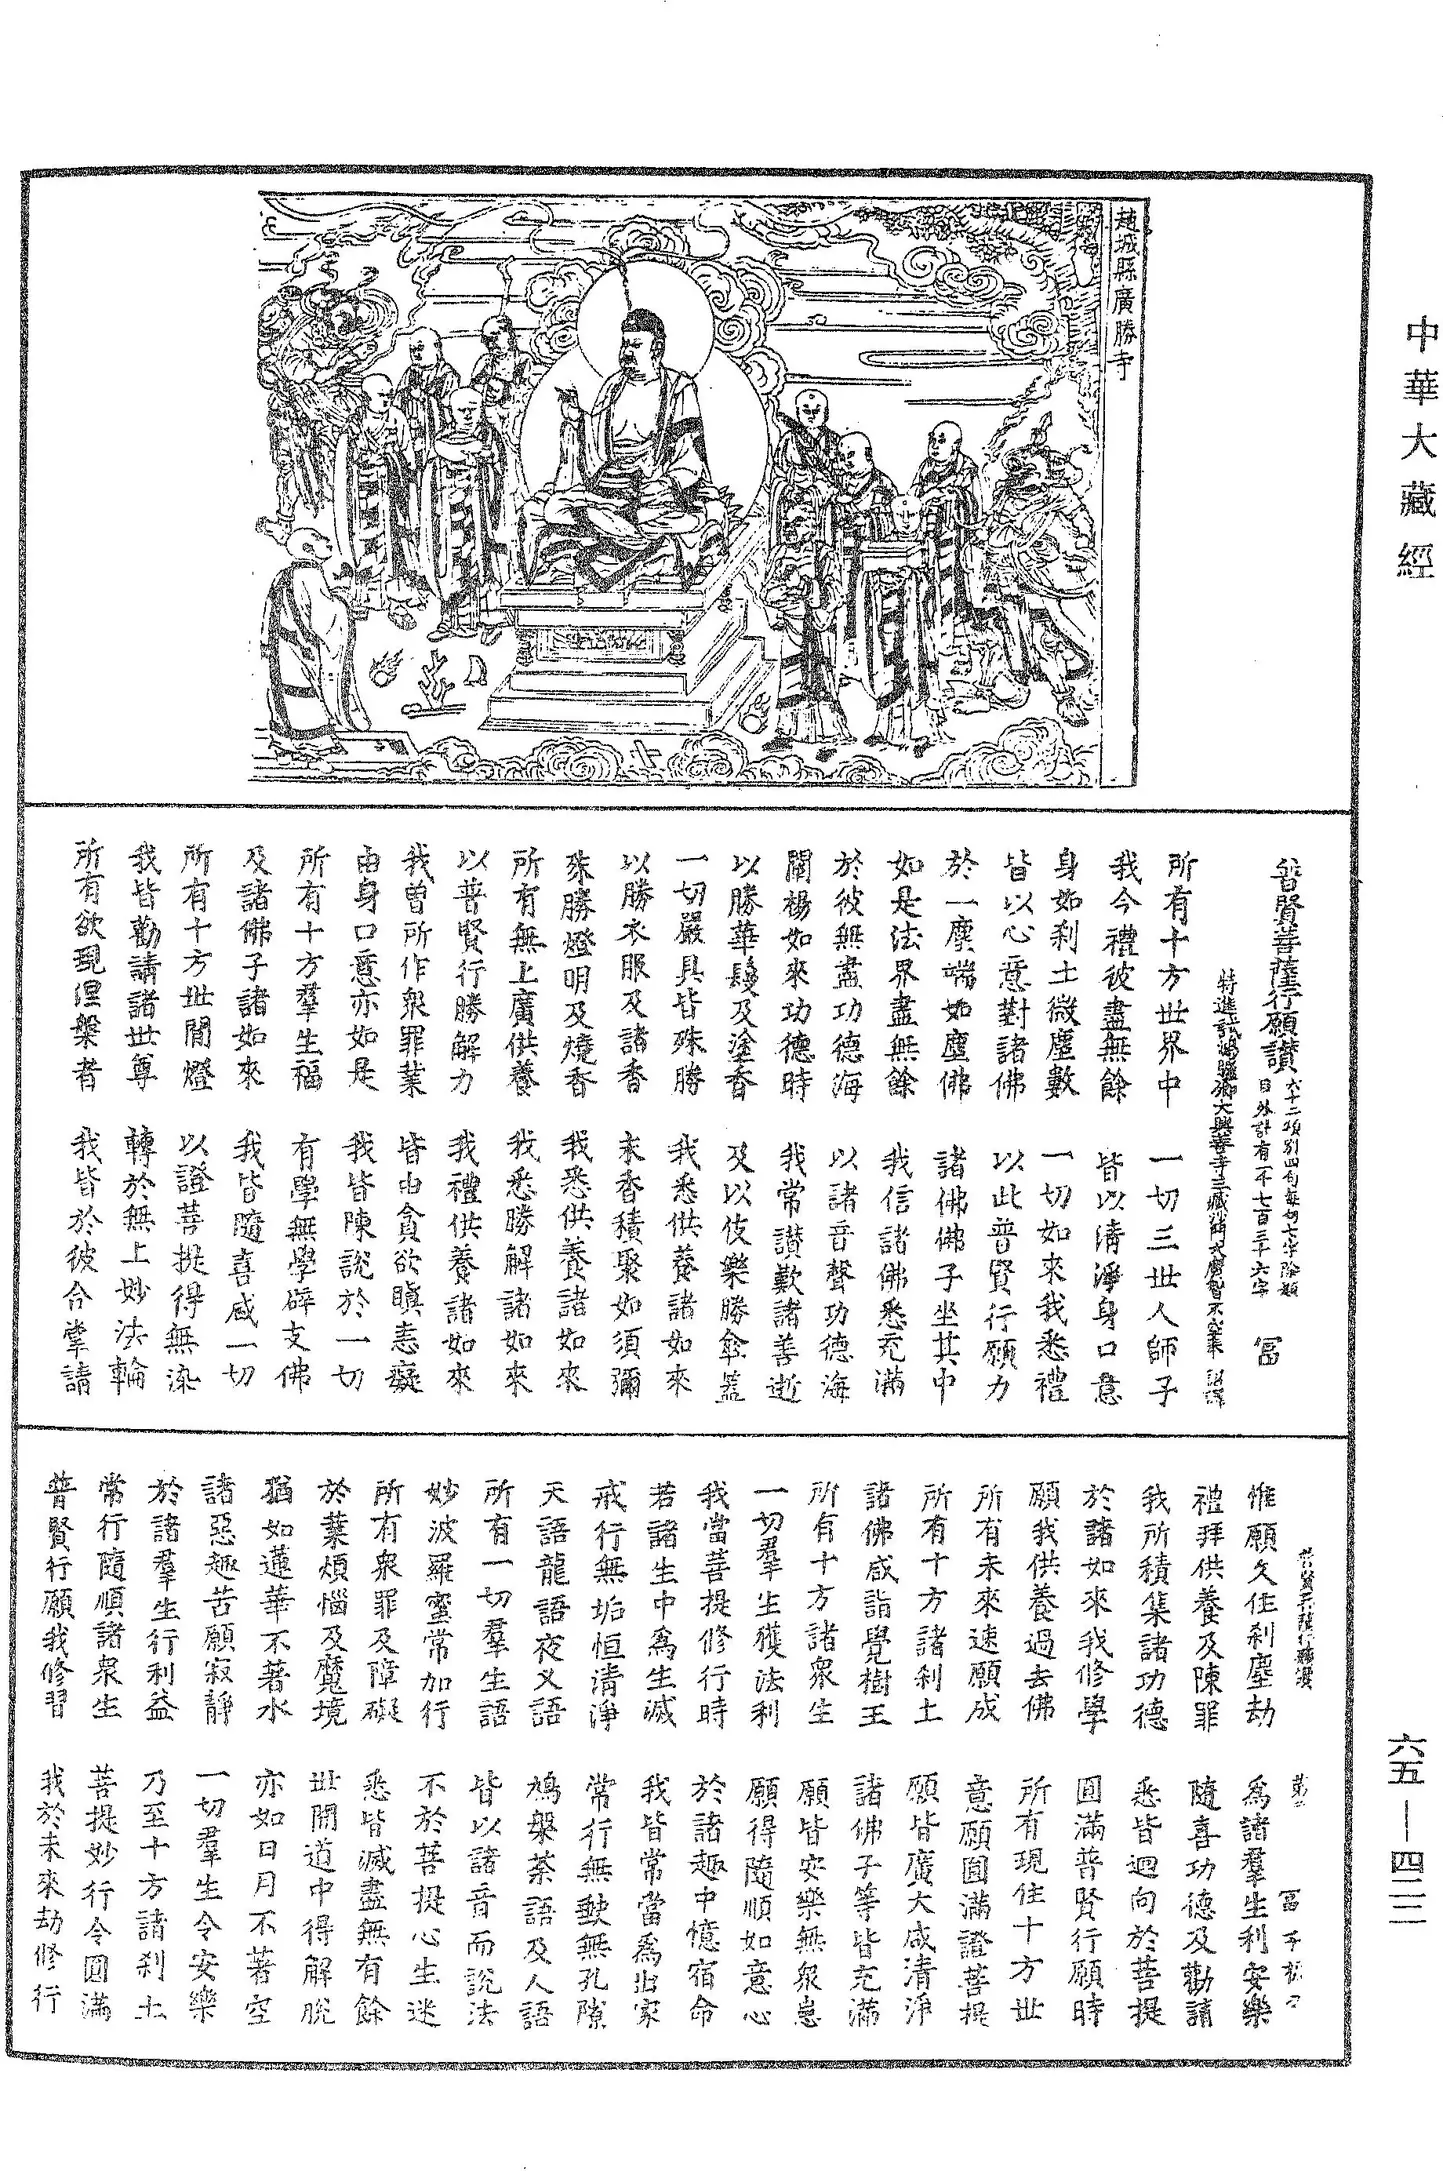 中華大藏經
趙城縣廣勝寺
普賢菩薩行願讚 六十二頌別四句每句七字除題
目外計有一千七百三十六字 冨
特進試鴻臚卿大興善寺三藏沙門大廣智不空奉 詔譯
所有十方世界中 一切三世人師子
我今禮彼盡無餘 皆以清淨身口意
身如刹土微塵數 一切如來我悉禮
皆以心意對諸佛 以此普賢行願力
於一塵端如塵佛 諸佛佛子坐其中
如是法界盡無餘 我信諸佛悉充滿
於彼無盡功德海 以諸音聲功德海
闡楊如來功德時 我常讃歎諸善逝
以勝華鬘及塗香 及以伎樂勝傘蓋
一切嚴具皆殊勝 我悉供養諸如來
以勝衣服及諸香 末香積聚如須彌
殊勝燈明及燒香 我悉供養諸如來
所有無上廣供養 我悉勝解諸如來
以普賢行勝解力 我禮供養諸如來
我曾所作衆罪業 皆由貪欲瞋恚癡
由身口意亦如是 我皆陳說於一切
所有十方羣生福 有學無學辟支佛
及諸佛子諸如來 我皆隨喜咸一切
所有十方世間燈 以證菩提得無染
我皆勸請諸世尊 轉於無上妙法輪
所有欲現涅槃者 我皆於彼合掌請
普賢菩薩行願讃 第 冨字
惟願久住刹塵劫 爲諸羣生利安樂
禮拜供養及陳罪 隨喜功德及勸請
我所積集諸功德 悉皆迴向於菩提
於諸如來我修學 圓滿普賢行願時
願我供養過去佛 所有現住十方世
所有未來速願成 意願圓滿證菩提
所有十方諸刹土 願皆廣大咸清淨
諸佛咸詣覺樹王 諸佛子等皆充滿
所有十方諸衆生 願皆安樂無衆患
一切羣生獲法利 願得隨順如意心
我當菩提修行時 於諸趣中憶宿命
若諸生中爲生滅 我皆常當爲出家
戒行無垢恒清淨 常行無缺無孔隙
天語龍語夜叉語 鳩槃荼語及人語
所有一切羣生語 皆以諸音而說法
妙波羅蜜常加行 不於菩提心生迷
所有衆罪及障礙 悉皆滅盡無有餘
於業煩惱及魔境 世間道中得解脫
猶如蓮華不著水 亦如日月不著空
諸惡趣苦願寂靜 一切羣生令安樂
於諸羣生行利益 乃至十方諸刹土
常行隨順諸衆生 菩提妙行令圓滿
普賢行願我修習 我於未來劫修行
六五—四二二